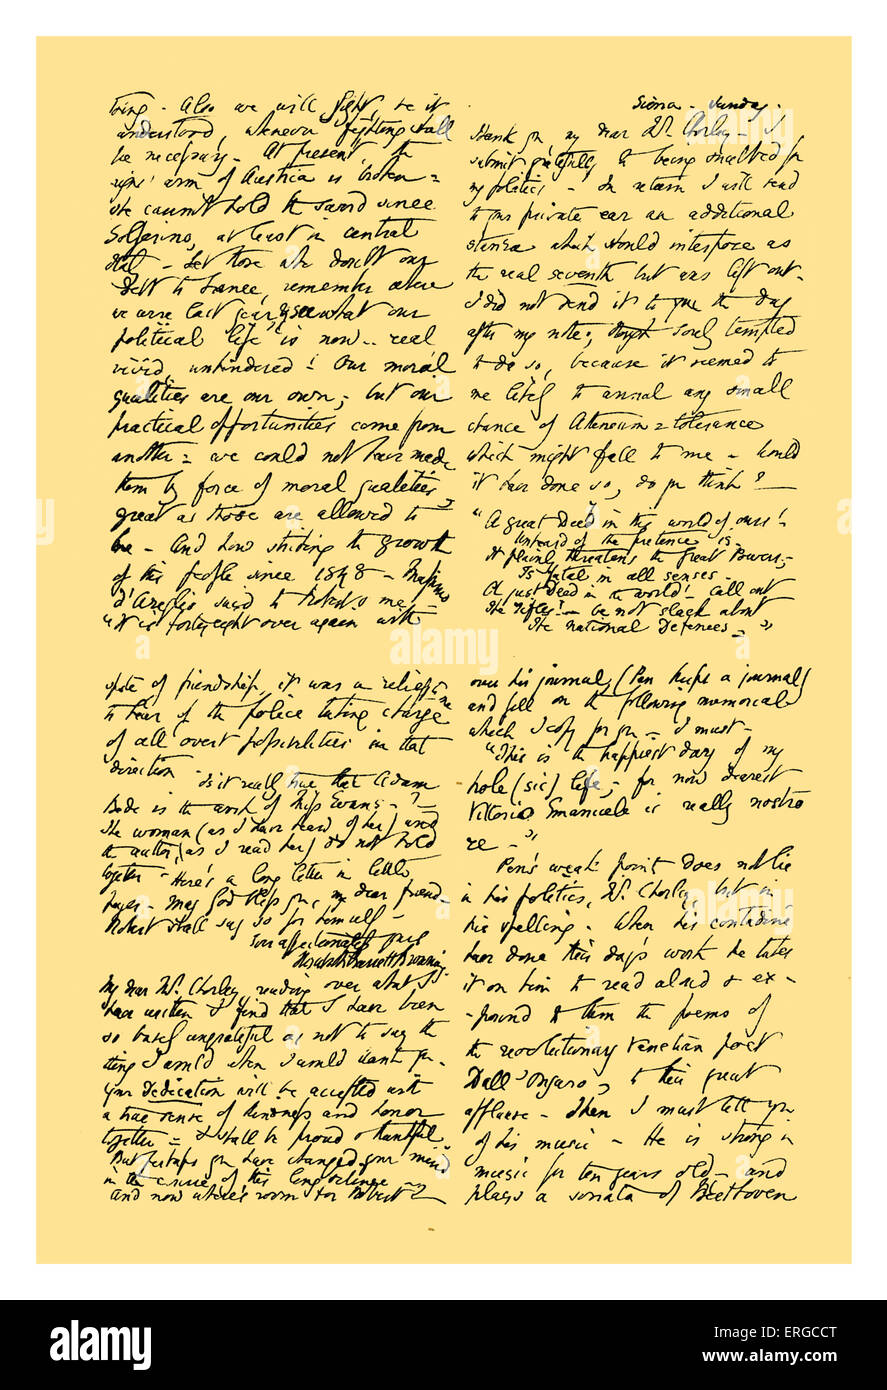 thing - Also we will fight, be it
understood, whenever fighting shall
be necessary - At present, the
right arm of Austria is broken =
she cannot hold the sword since
Solferino, at least in central
Italy - Let those who doubt our
debt to France, remember where
we were last year, & see what our
political life is now .. real
vivid, unhindered! Our moral
qualities are our own; but our
practical opportunities come from
another = we could not have made
them by force of moral qualities,
great as those are allowed to
be - And how striking the growth
of this people since 1848 - Massimo
d'Azeglio said to Robert & me,
"It is fortyeight over again with
Siena - Sunday -
Thank you, my dear Mr. Chorley - I
submit gratefully to being snubbed for
my politics - In return I will send
to your private ear an additional
stanza which should interpose as
the real seventh but was left out -
I did not send it to you the day
after my note, though sorely tempted
to do so, because it seemed to
me likely to annul any small
chance of Atheneum = tolerance
which might fall to me - Would
it have done so, do you think? -
"A great Deed in this world of ours!
Unheard of the pretence is -
It plainly threatens the Great Powers,-
Is fatal in all senses -
A just deed in the world! call out
the rifles! - be not slack about
the national Defences - "
spite of friendship, it was a relief
to hear of the police taking charge
of all overt popularities in that
direction -
Is it really true that Adam
Bede is the work of Miss Evans - ? -
The woman (as I have heard of her) and
the author (as I read her) do not hold
together - Here's a long letter in little
May God bless you, my dear friend -
Robert shall say so for himself -
Your affectionately
Elizabeth Barrett Browning
My dear Mr. Chorley, reading over what I
have written I find that I have been
so basely ungrateful as not to say the
thing I would when I would thank you -
your Dedication will be accepted with
a true sense of kindness and honor
together - I shall be proud & thankful
But perhaps you have changed your mind
in the course of this long silence -
and now where's room for Robert?
over his journal, (Pen keeps a journal)
and fell on the following memorial
which I copy for you - I must -
"This is the happiest day of my
hole (sic) life, for now dearest
Vittorio Emanuele is really nostro
re - "
Pen's weak point does not lie
in his politics, Mr. Chorley, but in
his spelling - When his contadine
have done their day's work he takes
it on him to read aloud & ex -
- pound to them the poems of
the revolutionary Venetian poet
Dall 'Ongaro, to their great
applause - Then I must tell you
of his music - He is strong in
music for ten years old - and
plays a sonata of Beethoven
alamy
alamy - ERGCCT
Image ID: ERGCCT
www.alamy.com